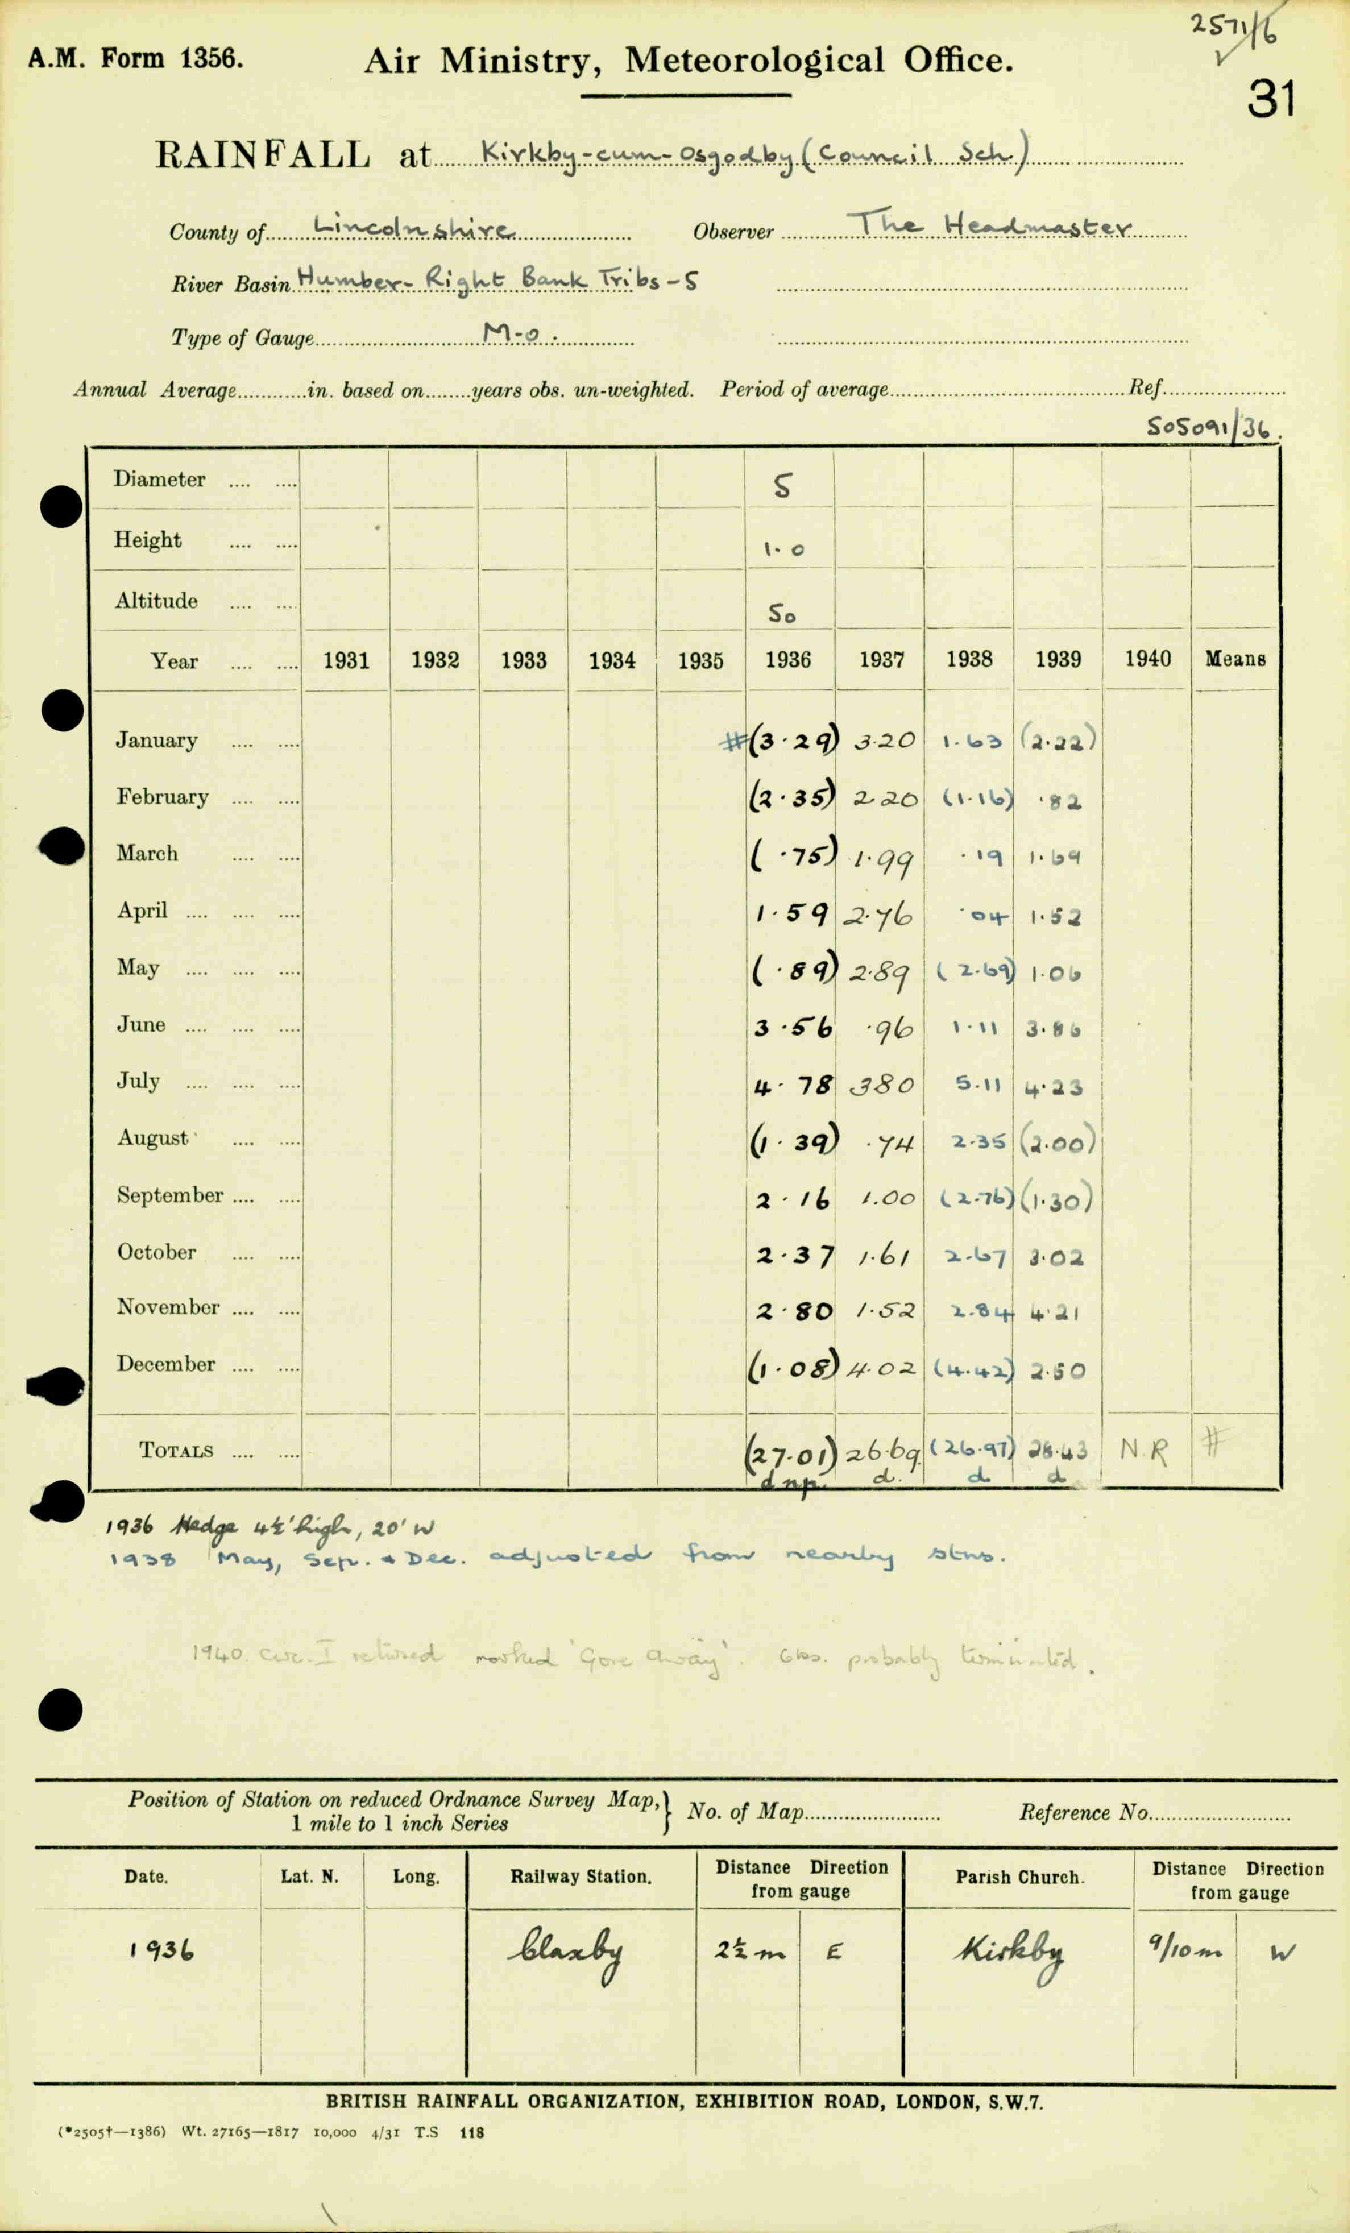 2571/6
A.M. Form 1356. Air Ministry, Meteorological Office.
31
RAINFALL at Kirkby-cum-Osgodby (Council Sch)
County of Lincolnshire Observer The Headmaster
River Basin Humber- Right Bank Tribs - 5
Type of Gauge M-O.
Annual Average in. based on years obs. un-weighted. Period of average Ref.
505091/36.
Diameter .... .... 5
Height .... .... 1.0
Altitude .... .... 50
Year .... .... 1931 1932 1933 1934 1935 1936 1937 1938 1939 1940 Means
January .... .... #(3.29) 3.20 1.63 (2.22)
February .... .... (2.35) 2.20 (1.16) .82
March .... .... (.75) 1.99 .19 1.69
April .... .... .... 1.59 2.76 .04 1.52
May .... .... .... (.89) 2.89 (2.69) 1.06
June .... .... .... 3.56 .96 1.11 3.86
July .... .... .... 4.78 3.80 5.11 4.23
August .... .... (1.39) .74 2.35 (2.00)
September .... .... 2.16 1.00 (2.76) (1.30)
October .... .... 2.37 1.61 2.67 3.02
November .... .... 2.80 1.52 2.84 4.21
December .... .... (1.08) 4.02 (4.42) 2.50
TOTALS .... .... (27.01) 26.69 (26.97) 28.43 N.R #
d np. d. d d
1936 Hedge 4½' high, 20' W
1938 May, Sep. & Dec. adjusted from nearby stns.
1940 Circ. I returned marked 'Gone Away'. Obs. probably terminated.
Position of Station on reduced Ordnance Survey Map, } No. of Map Reference No.
1 mile to 1 inch Series
Date. Lat. N. Long. Railway Station. Distance Direction from gauge Parish Church. Distance Direction from gauge
1936 Claxby 2½ m E Kirkby 9/10 m W
BRITISH RAINFALL ORGANIZATION, EXHIBITION ROAD, LONDON, S.W.7.
(*2505†—1386) Wt. 27165—1817 10,000 4/31 T.S 118